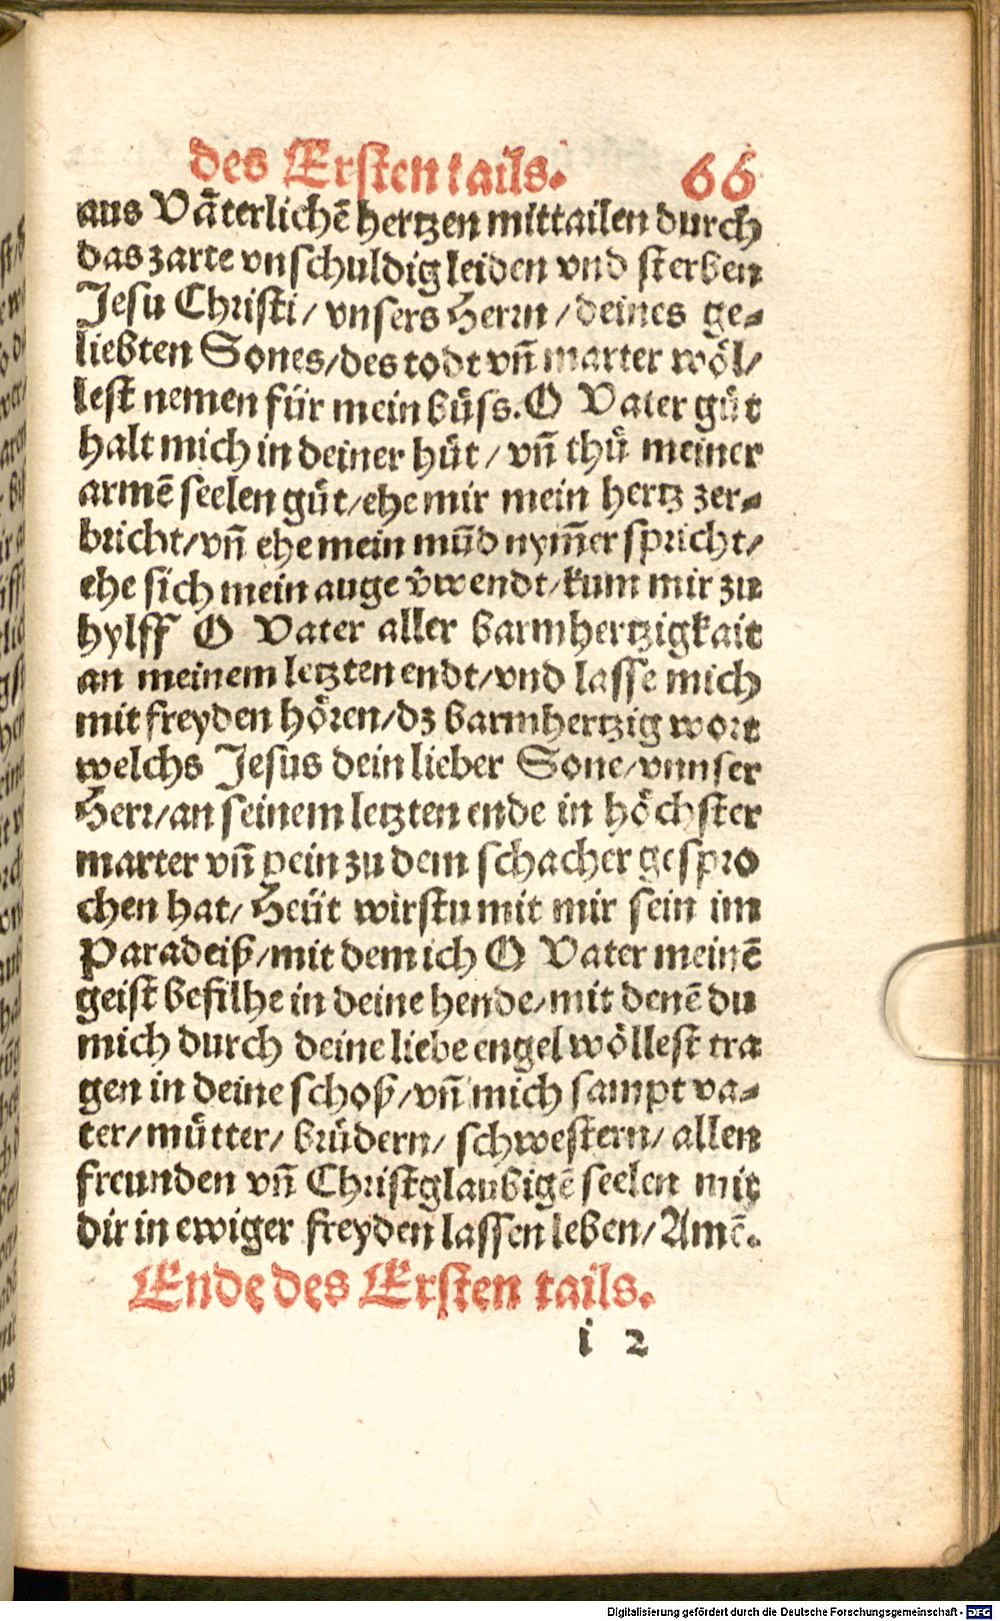 des Ersten tails. 66
aus Vaͤterlichẽ hertzen mittailen durch
das zarte vnschuldig leiden vnd sterben
Jesu Christi/ vnsers Herrn/ deines ge-
liebten Sones/ des todt vñ marter woͤl/
lest nemen für mein buͤss. O Vater guͤt
halt mich in deiner huͤt/ vñ thuͤ meiner
armẽ seelen guͤt/ ehe mir mein hertz zer-
bricht/ vñ ehe mein mũd nym̃er spricht/
ehe sich mein auge v̈wendt/ kum mir zu
hylff O Vater aller barmhertzigkait
an meinem letzten endt/ vnd lasse mich
mit freyden hoͤren/ dz barmhertzig wort
welchs Jesus dein lieber Sone/ vnnser
Herr/ an seinem letzten ende in hoͤchster
marter vñ pein zu dem schacher gespro
chen hat/ Heüt wirstu mit mir sein im
Paradeiß/ mit dem ich O Vater meinẽ
geist befilhe in deine hende/ mit denẽ du
mich durch deine liebe engel woͤllest tra
gen in deine schoß/ vñ mich sampt va-
ter/ muͤtter/ brüdern/ schwestern/ allen
freunden vñ Christglaubigẽ seelen mit
dir in ewiger freyden lassen leben/ Amẽ.
Ende des Ersten tails.
i 2
Digitalisierung gefördert durch die Deutsche Forschungsgemeinschaft - DFG